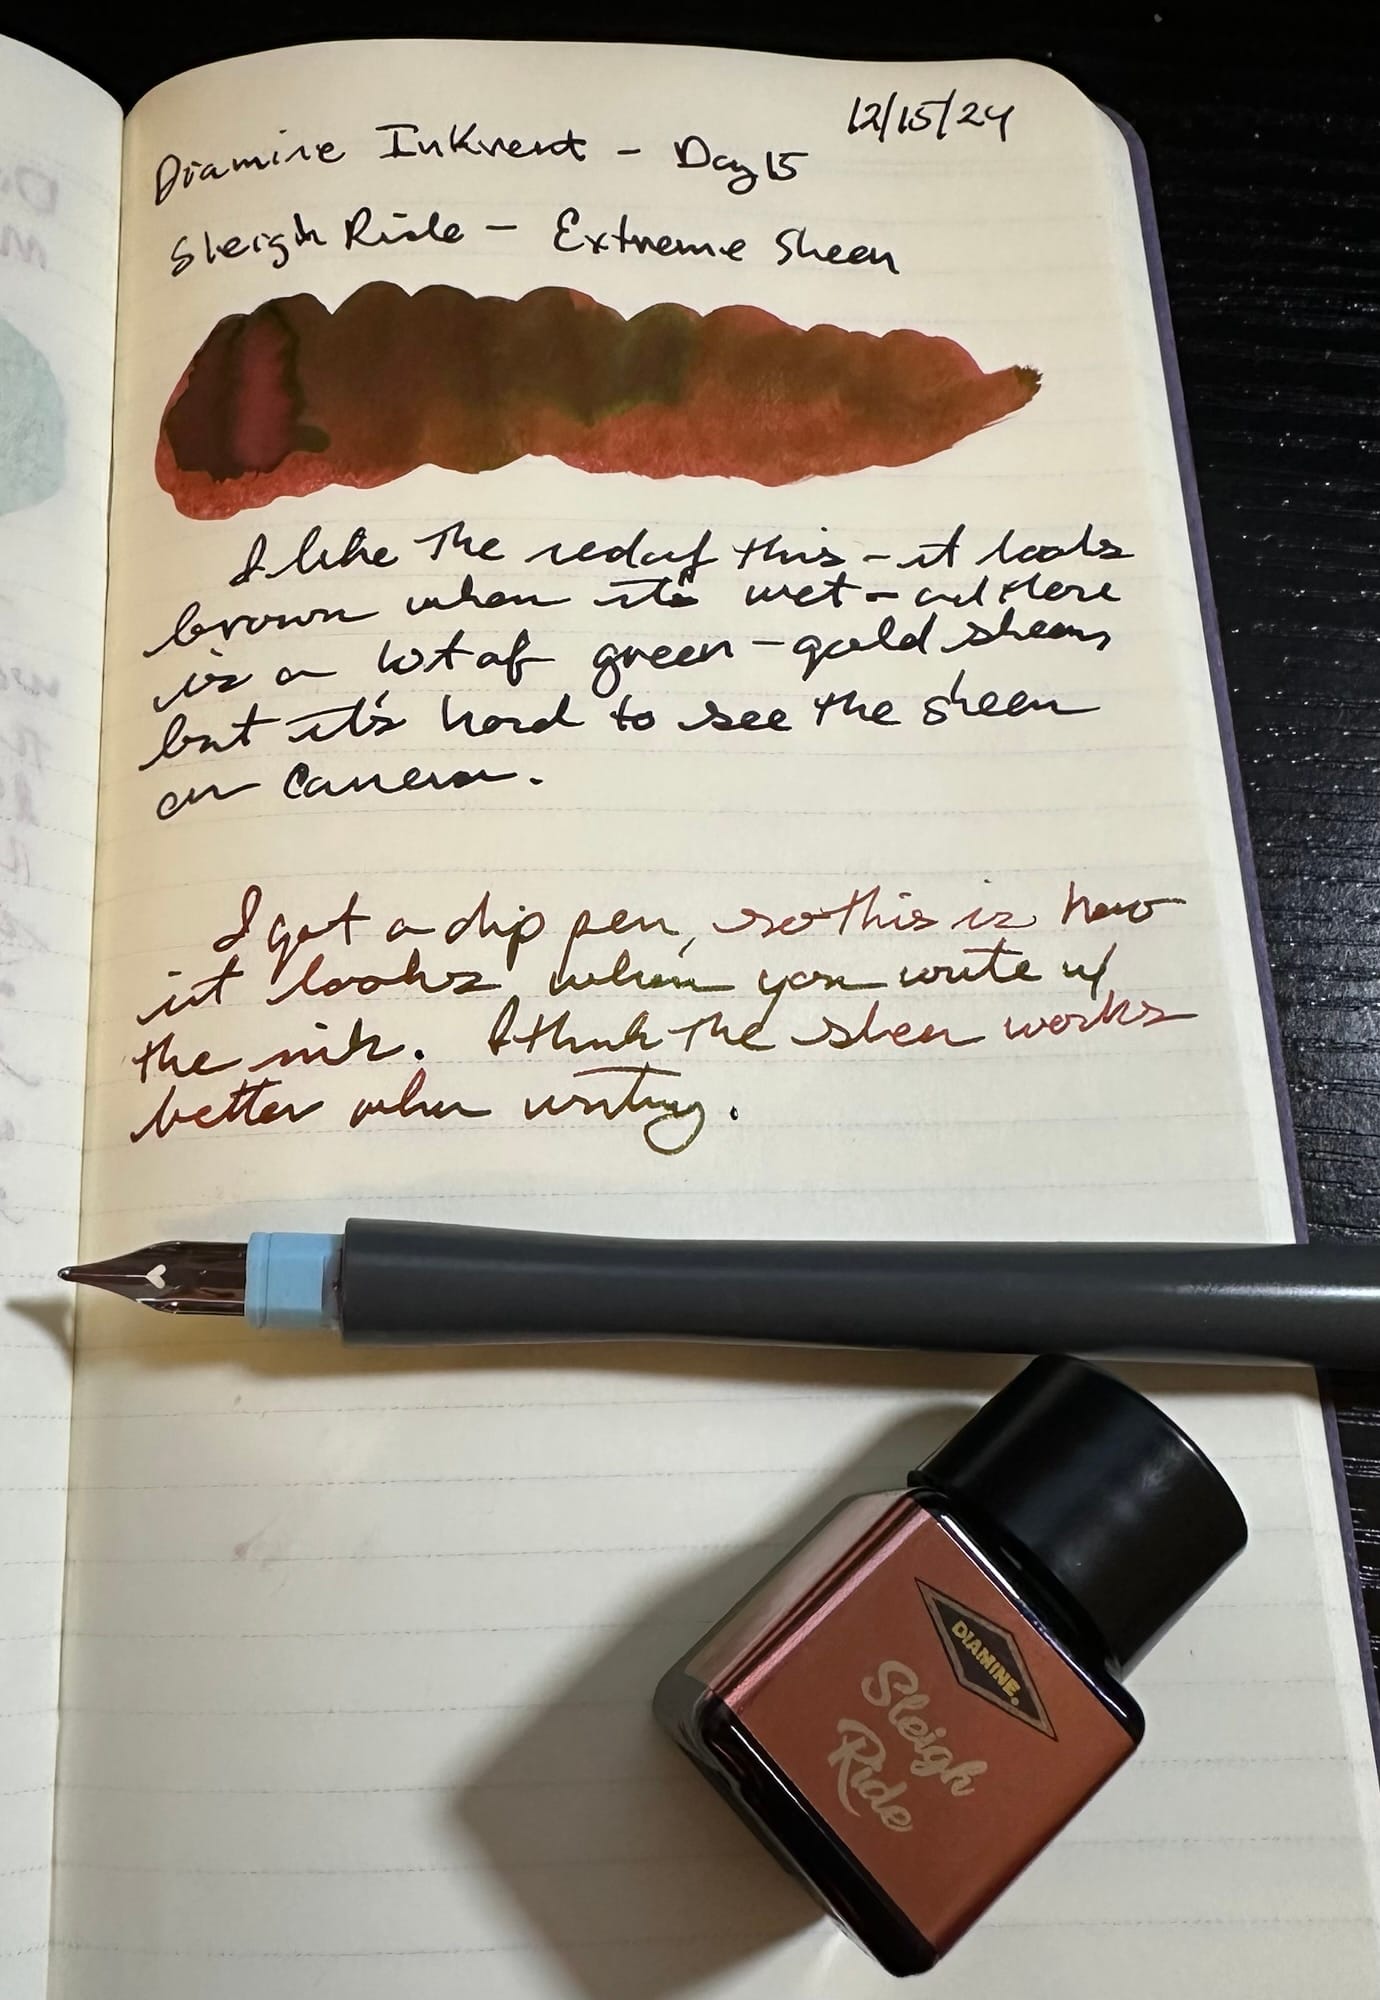 12/15/24
Diamine Inkvent - Day 15
Sleigh Ride - Extreme Sheen
I like the red of this - it looks
brown when it's wet - and there
is a lot of green-gold sheen
but it's hard to see the sheen
on camera.
I got a dip pen, so this is how
it looks when you write w/
the ink. I think the sheen works
better when writing.
DIAMINE.
Sleigh
Ride